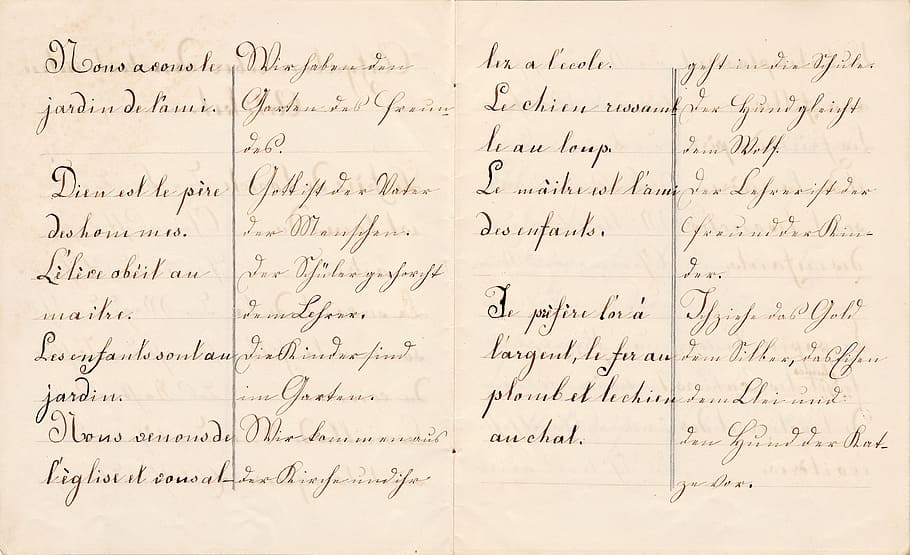 Nous avons le
jardin de l'ami.
Dieu est le père
des hommes.
L'élève obéit au
maître.
Les enfants sont au
jardin.
Nous venons de
l'église et vous al-
Wir haben den
Garten des Freun-
des.
Gott ist der Vater
der Menschen.
Der Schüler gehorcht
dem Lehrer.
Die Kinder sind
im Garten.
Wir kommen aus
der Kirche und ihr
lez a l'ecole.
Le chien ressemb
le au loup.
Le maître est l'ami
des enfants.
Je préfère l'or à
l'argent, le fer au
plomb et le chien
au chat.
geht in die Schule.
Der Hund gleicht
dem Wolf.
Der Lehrer ist der
Freund der Kin-
der.
Ich ziehe das Gold
dem Silber, das Eisen
dem Blei und
den Hund der Kat-
ze vor.